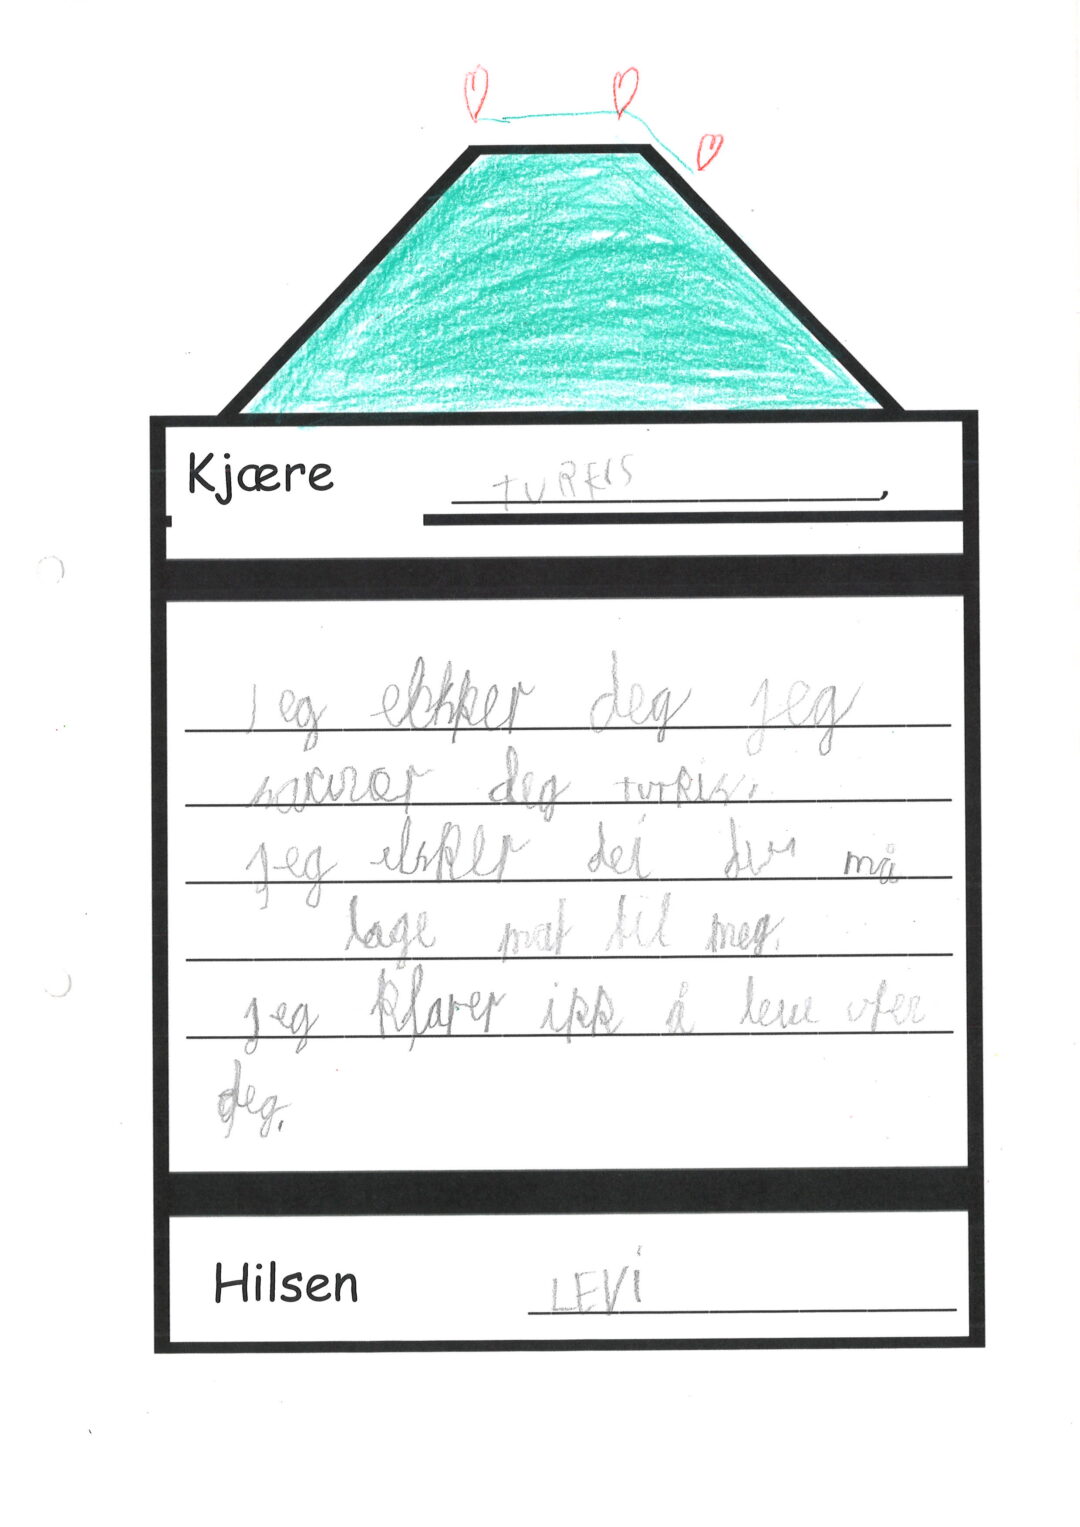 Kjære TURKIS,
jeg elskker deg jeg
savner deg turkis.
jeg elsker dei du må
lage mat til meg.
jeg klarer ikk å leve uten
deg.
Hilsen LEVi